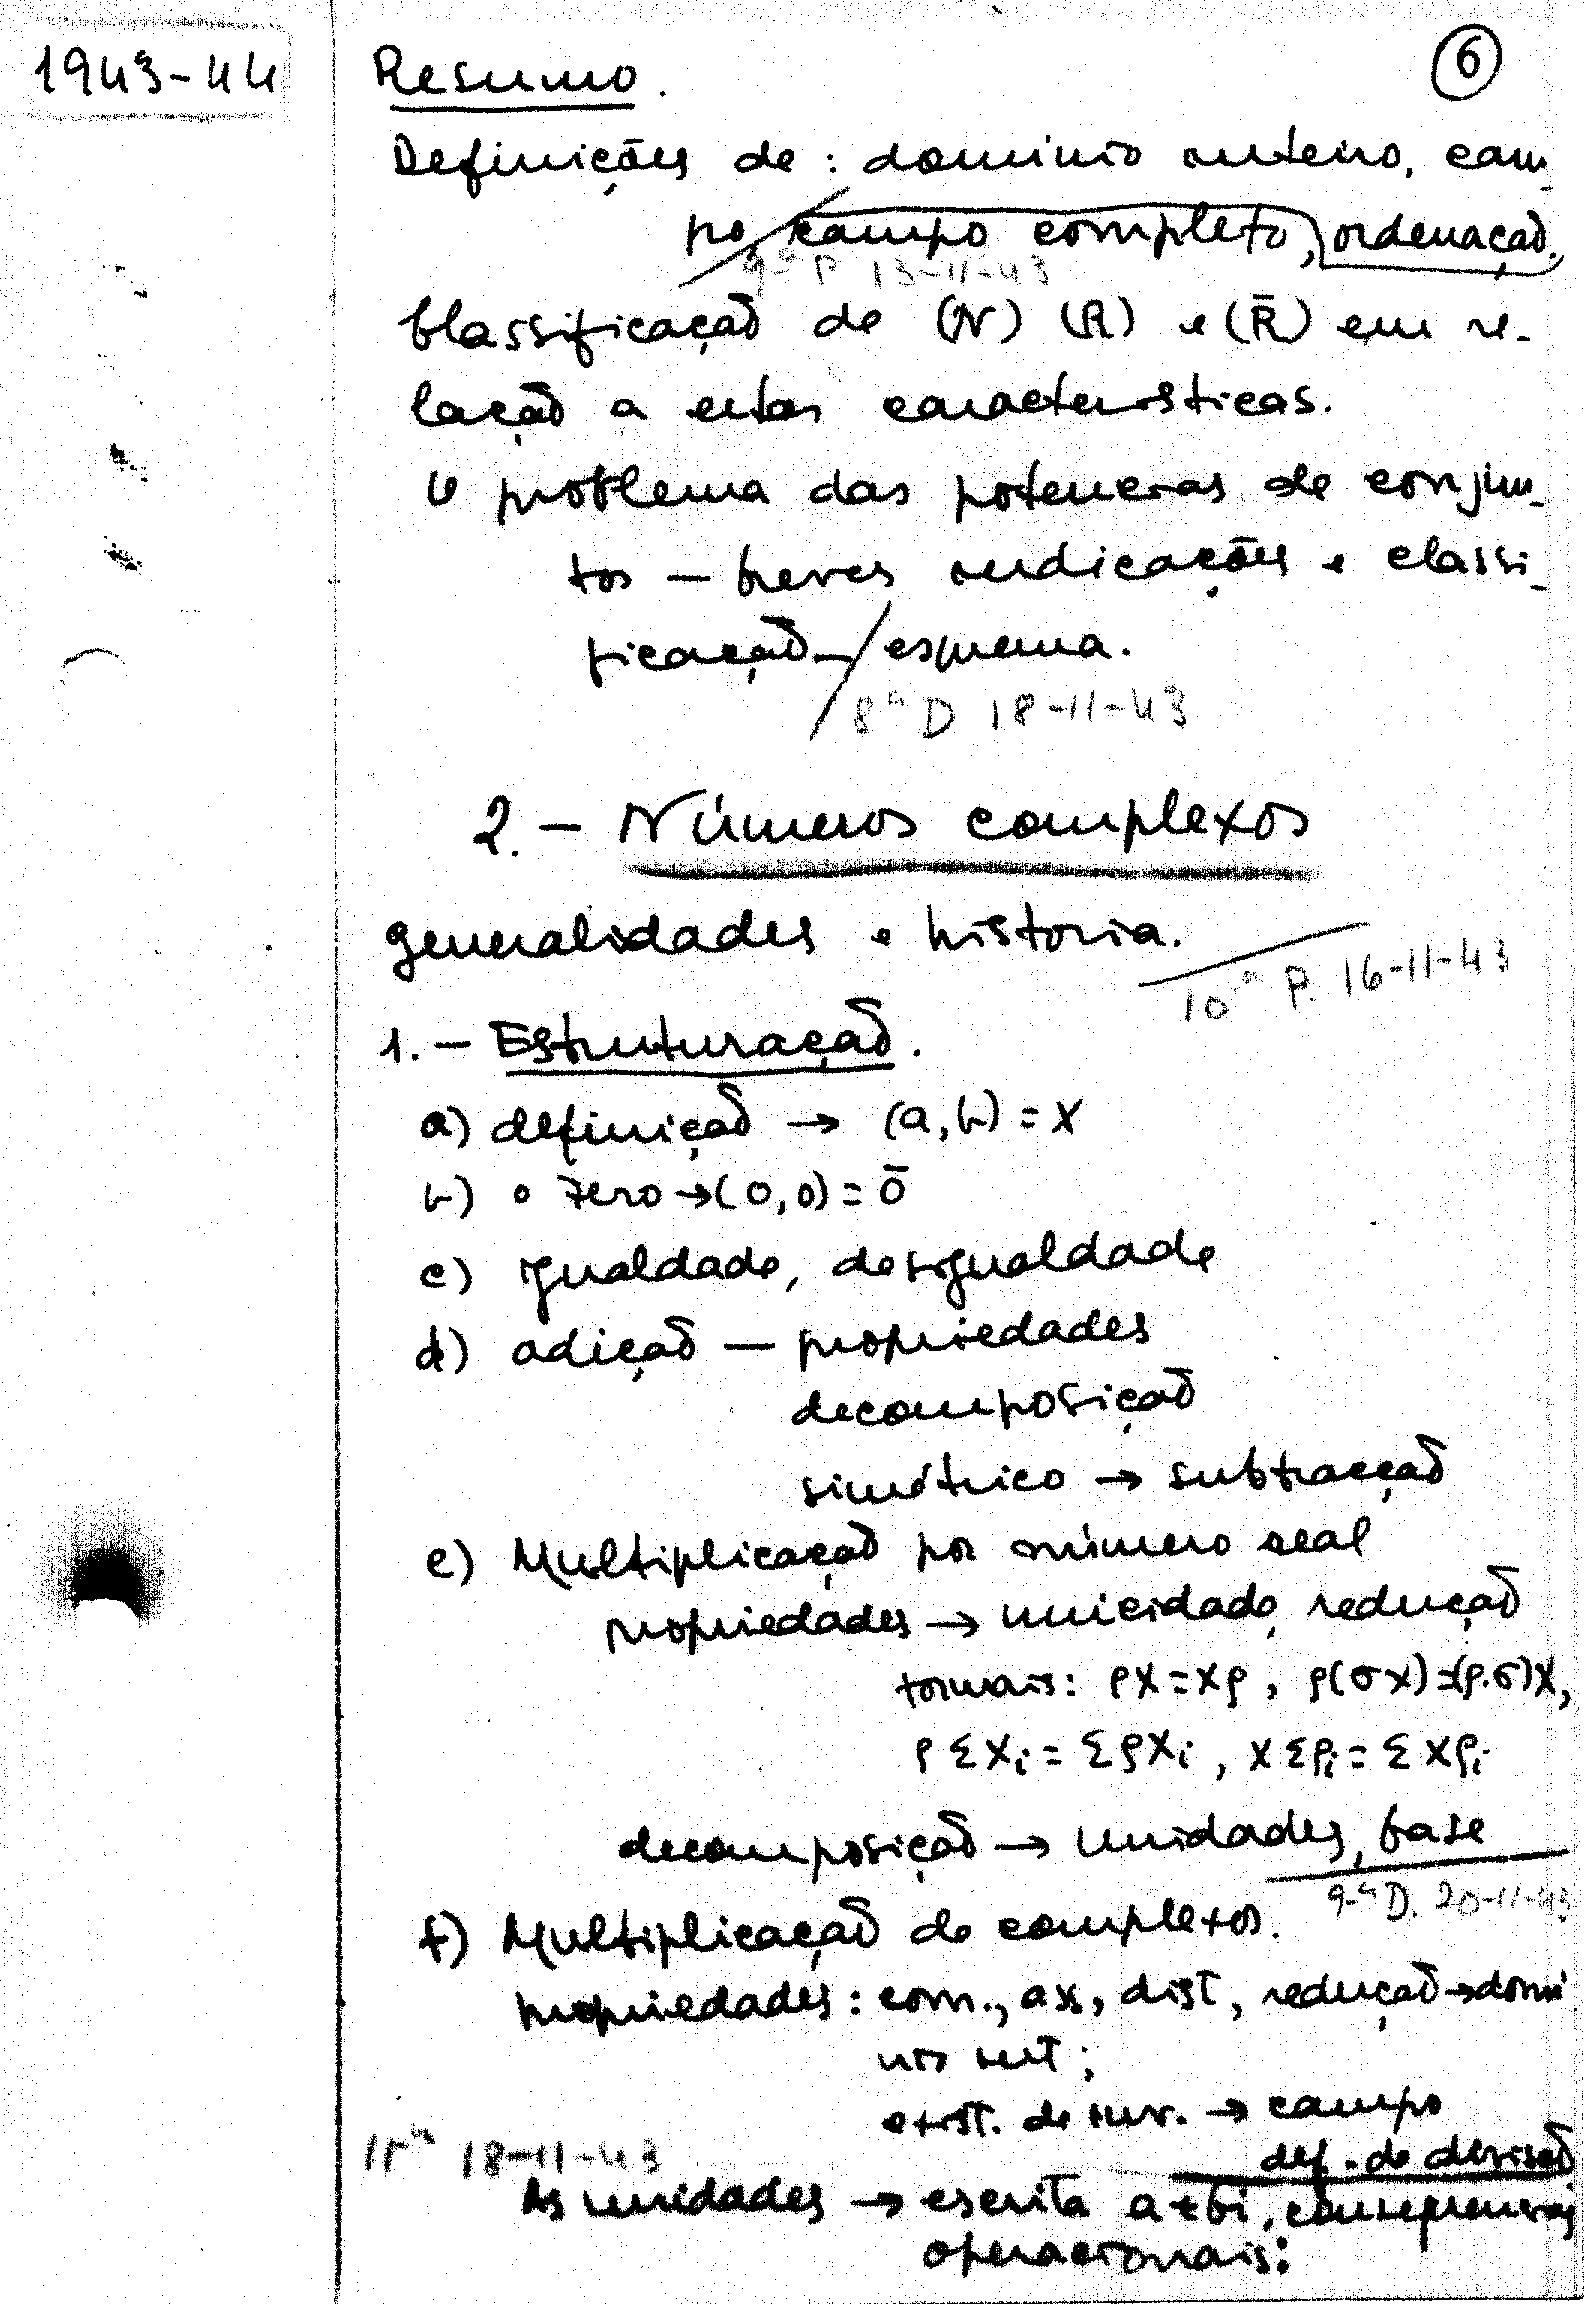 1943-44
Resumo.
6
Definições de: dominio inteiro, cam-
po, campo completo, ordenação.
9ª P. 13-11-43
Classificação de (N) (R) e (R̄) em re-
lação a estas caracteristicas.
O problema das potencias de conjun-
tos — breves indicações e classi-
ficação — esquema.
8ª D 18-11-43
2. — Números complexos
Generalidades e historia.
10ª P. 16-11-43
1. — Estruturação.
a) definição → (a, b) = X
b) o zero → (0, 0) = 0̄
c) igualdade, desigualdade
d) adição — propriedades
decomposição
simétrico → subtracção
e) Multiplicação por número real
propriedades → unicidade, redução
formais: ρX = Xρ, ρ(σX) = (ρ.σ)X,
ρΣXi = ΣρXi, XΣρi = ΣXρi
decomposição → unidades, base
9ª D. 20-11-43
f) Multiplicação de complexos.
propriedades: com., ass, dist, redução → domi
nio int;
exist. de inv. → campo
def. de divisão
11ª 18-11-43
As unidades → escrita a+bi, consequencias
operacionais: